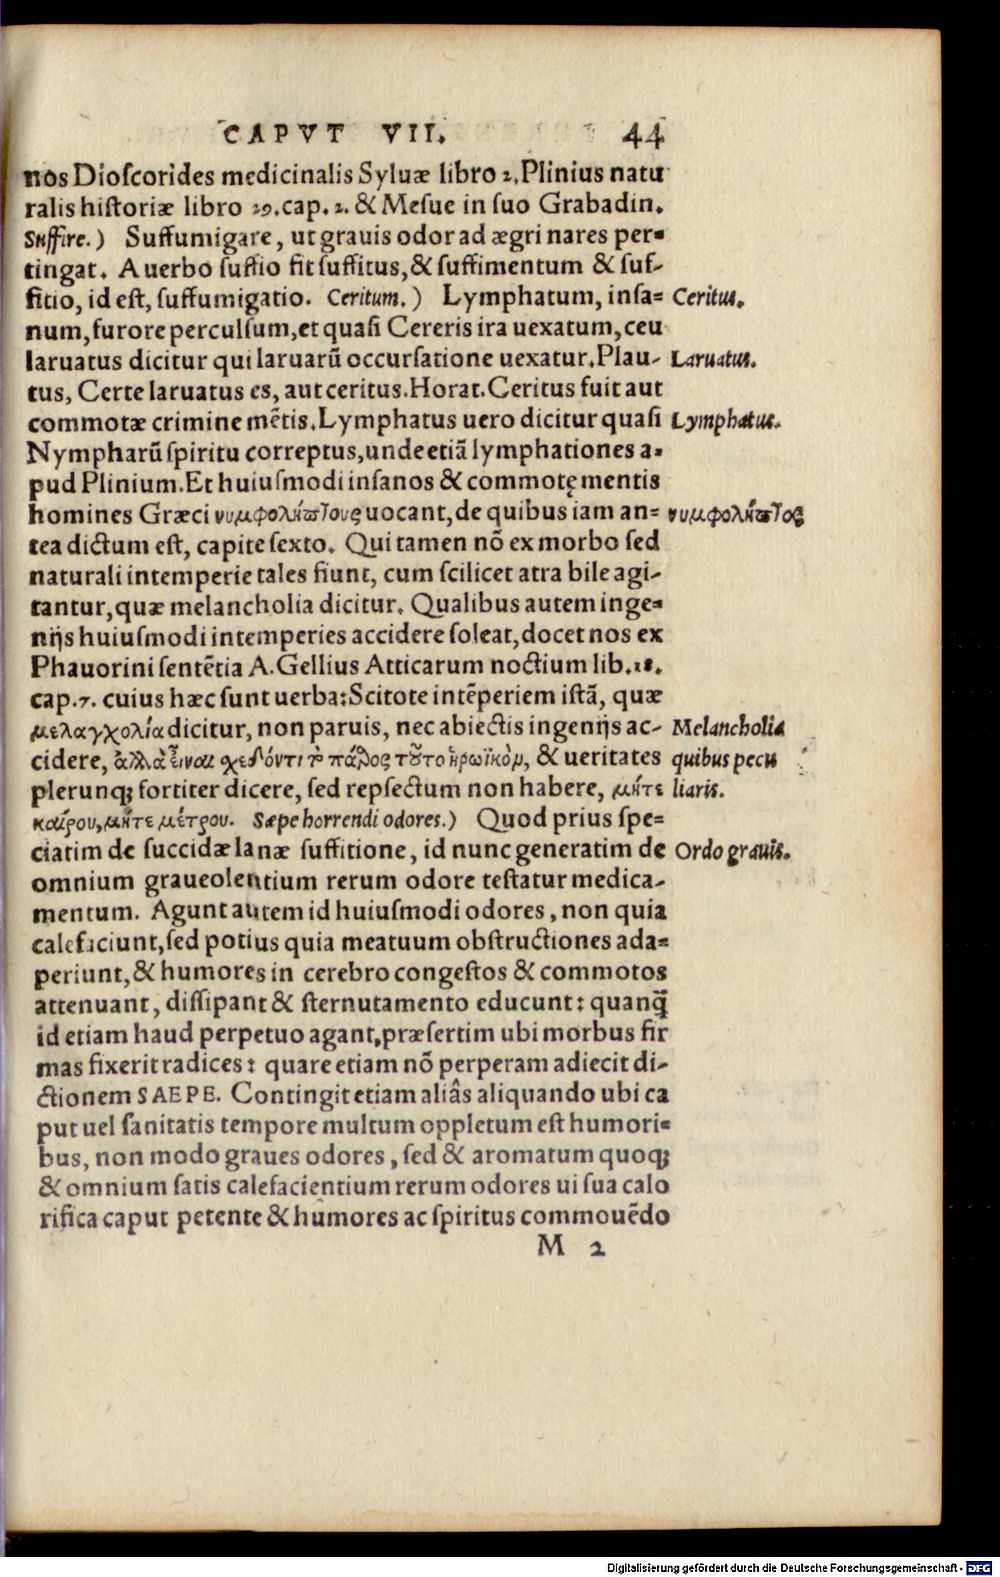 CAPVT VII. 44
nos Dioſcorides medicinalis Syluæ libro 2. Plinius natu
ralis hiſtoriæ libro 29. cap. 2. & Meſue in ſuo Grabadin.
Suffire.) Suffumigare, ut grauis odor ad ægri nares per-
tingat. A uerbo ſuffio fit ſuffitus, & ſuffimentum & ſuf-
fitio, id eſt, ſuffumigatio. Ceritum.) Lymphatum, inſa= Ceritus.
num, furore perculſum, et quaſi Cereris ira uexatum, ceu
laruatus dicitur qui laruarũ occurſatione uexatur. Plau- Laruatus.
tus, Certe laruatus es, aut ceritus. Horat. Ceritus fuit aut
commotæ crimine mẽtis. Lymphatus uero dicitur quaſi Lymphatus.
Nympharũ ſpiritu correptus, unde etiã lymphationes a-
pud Plinium. Et huiuſmodi inſanos & commotę mentis
homines Græci νυμφολήπτους uocant, de quibus iam an= νυμφολήπτος
tea dictum eſt, capite ſexto. Qui tamen nõ ex morbo ſed
naturali intemperie tales fiunt, cum ſcilicet atra bile agi-
tantur, quæ melancholia dicitur. Qualibus autem inge=
nijs huiuſmodi intemperies accidere ſoleat, docet nos ex
Phauorini ſentẽtia A. Gellius Atticarum noctium lib. 18.
cap. 7. cuius hæc ſunt uerba: Scitote intẽperiem iſtã, quæ
μελαγχολία dicitur, non paruis, nec abiectis ingenijs ac- Melancholia
cidere, ἀλλὰ εἶναι σχεδόντι τὸ πάθος τοῦτο ἡρωϊκὸν, & ueritates quibus pecu
plerunq; fortiter dicere, ſed repſectum non habere, μήτε liaris.
καίρου, μήτε μέτρου. Sæpe horrendi odores.) Quod prius ſpe=
ciatim de ſuccidæ lanæ ſuffitione, id nunc generatim de Ordo grauis.
omnium graueolentium rerum odore teſtatur medica-
mentum. Agunt autem id huiuſmodi odores, non quia
calefaciunt, ſed potius quia meatuum obſtructiones ada=
periunt, & humores in cerebro congeſtos & commotos
attenuant, diſſipant & ſternutamento educunt: quanq̃
id etiam haud perpetuo agant, præſertim ubi morbus fir
mas fixerit radices: quare etiam nõ perperam adiecit di-
ctionem SAEPE. Contingit etiam aliâs aliquando ubi ca
put uel ſanitatis tempore multum oppletum eſt humori=
bus, non modo graues odores, ſed & aromatum quoq;
& omnium ſatis calefacientium rerum odores ui ſua calo
rifica caput petente & humores ac ſpiritus commouẽdo
M 2
Digitalisierung gefördert durch die Deutsche Forschungsgemeinschaft - DFG